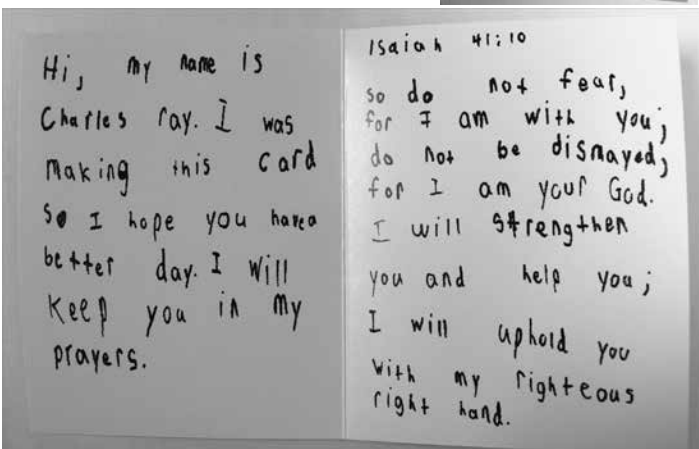 Hi, my name is
Charles ray. I was
making this card
so I hope you have a
better day. I will
keep you in my
prayers.
Isaiah 41:10
so do not fear,
for I am with you;
do not be dismayed,
for I am your God.
I will strengthen
you and help you;
I will uphold you
with my righteous
right hand.